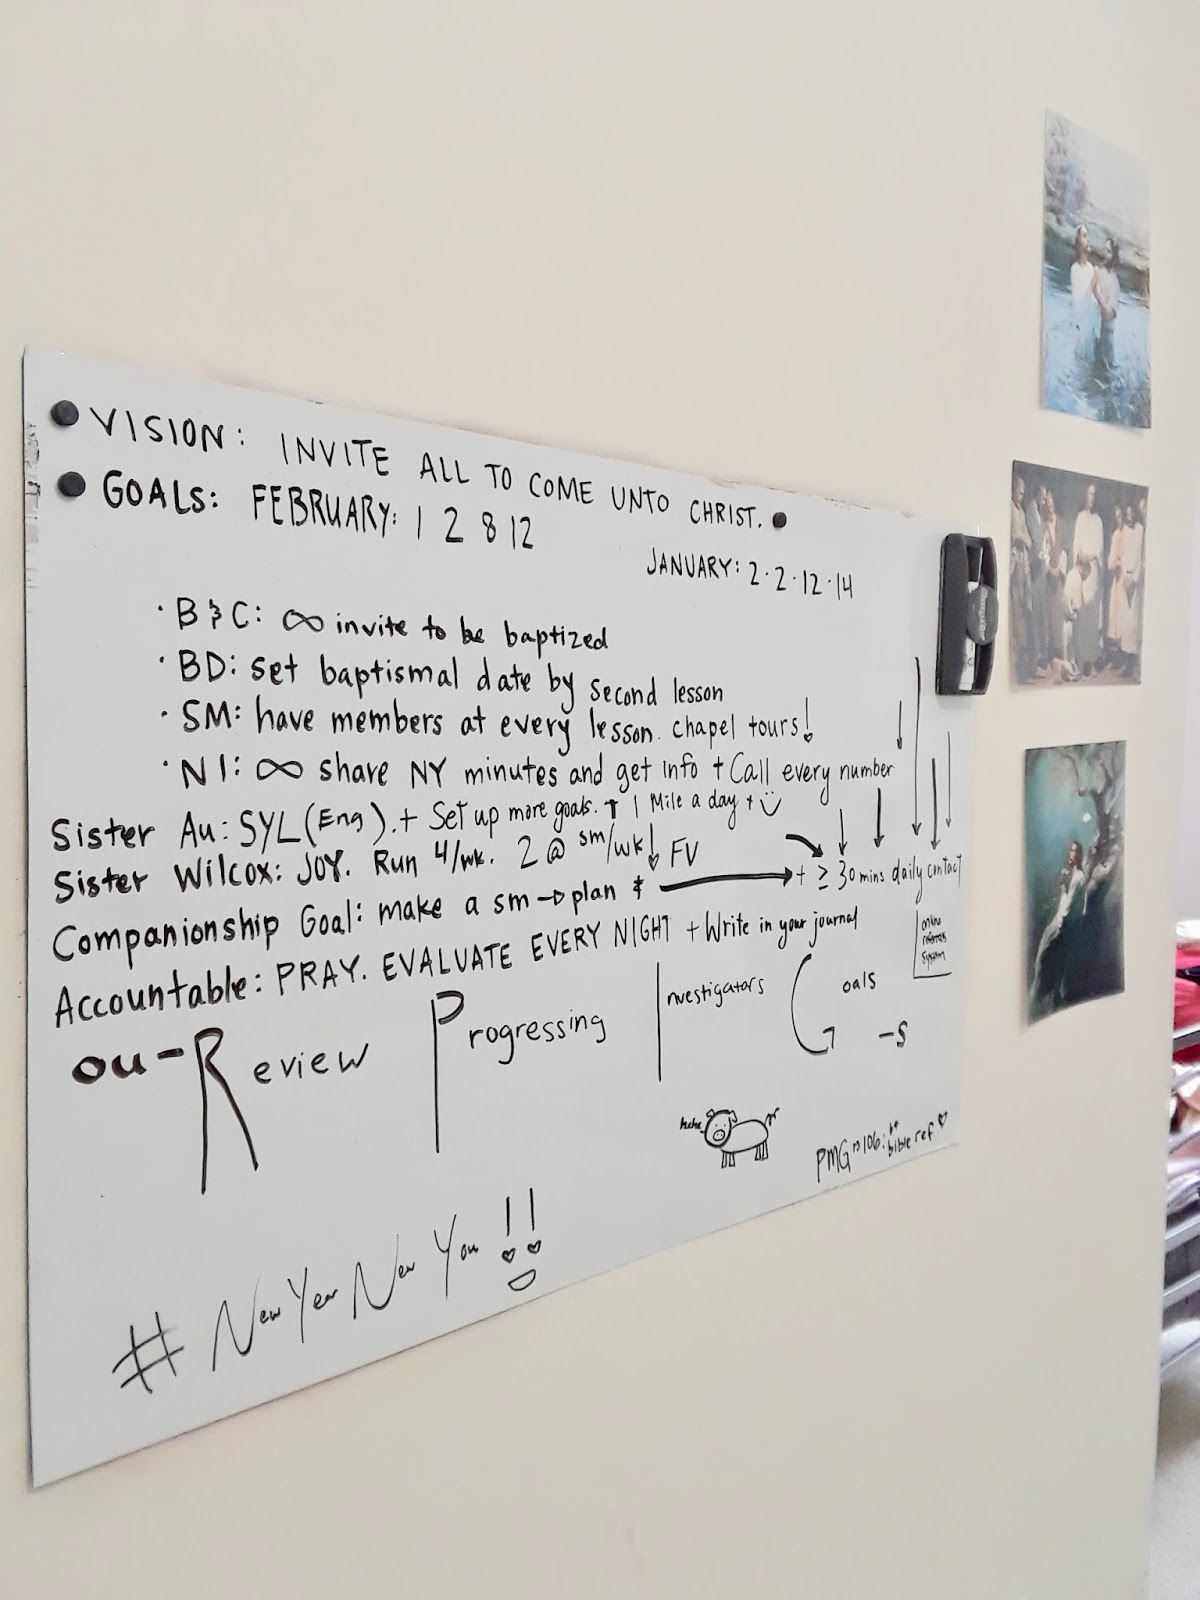 VISION: INVITE ALL TO COME UNTO CHRIST.
GOALS: FEBRUARY: 1 2 8 12
JANUARY: 2·2·12·14
· B & C: ∞ invite to be baptized
· BD: set baptismal date by second lesson
· SM: have members at every lesson. chapel tours!
· NI: ∞ share NY minutes and get info + Call every number
Sister Au: SYL (Eng). + Set up more goals. ↑ 1 Mile a day + :)
Sister Wilcox: JOY. Run 4/wk. 2 @ sm/wk! FV
Companionship Goal: make a sm → plan & → + ≥ 30 mins daily contact
online referrals system
Accountable: PRAY. EVALUATE EVERY NIGHT + Write in your journal
ou-Review Progressing Investigators Goals -S
hehe
PMG 106: bible ref ♡
# New Year New You !!